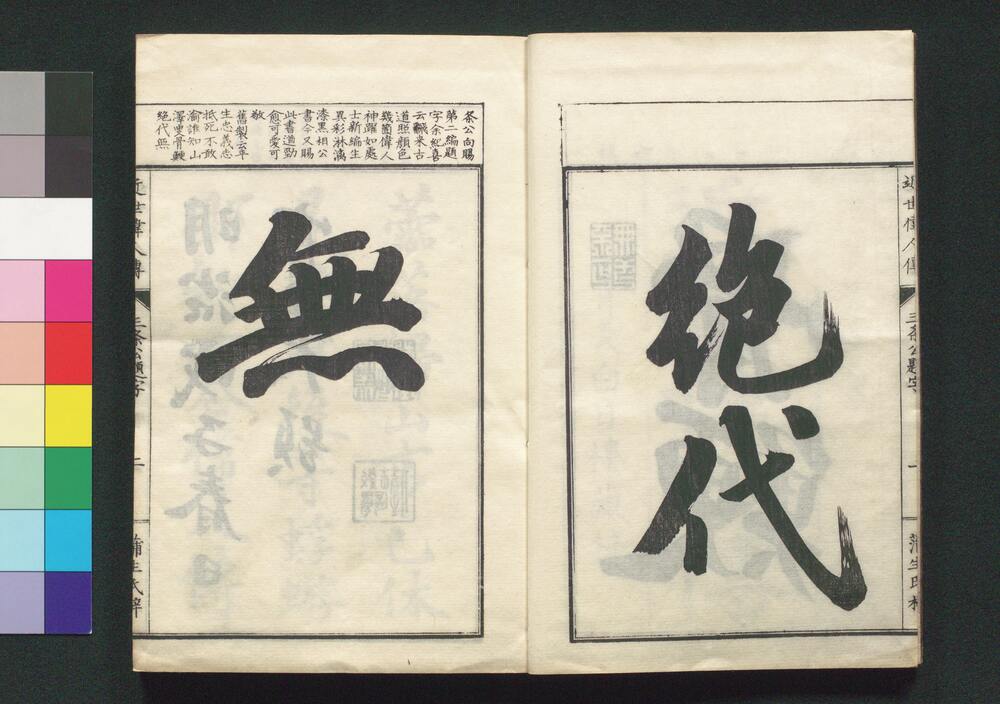 絶代
近世偉人傳
三条公題字
一
蒲生氏
条公向賜
第二編題
字余紀喜
云飜来古
道照顔色
幾箇偉人
神躍如處
士新編生
異彩淋漓
漆黒相公
書今又賜
此書遒勁
愈可愛可
敬
舊製云平
生忠義志
抵死不敢
渝誰知山
澤叟骨鯁
絶代無
無
近世偉人傳
三条公題字
二
蒲生氏梓